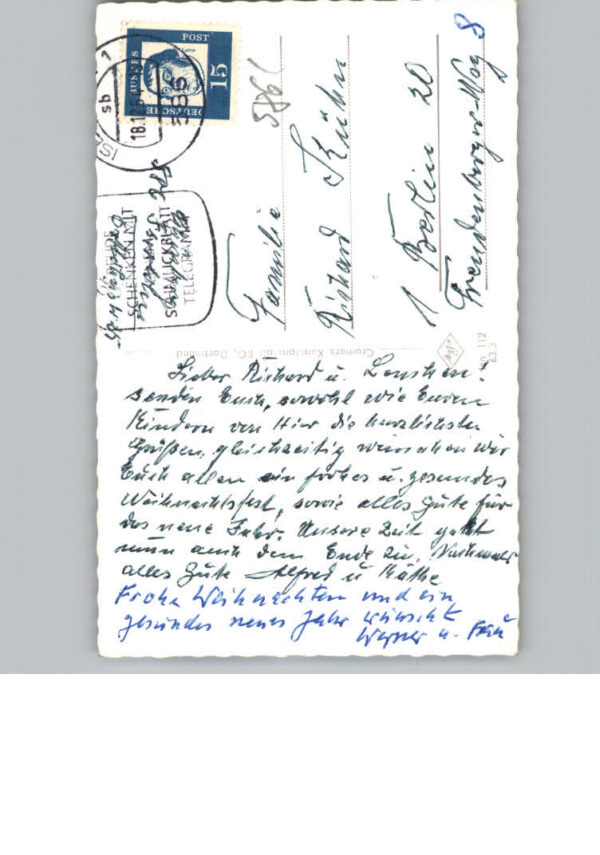 Lieber Richard u. Lenchen!
senden Euch, sowohl wie Euren
Kindern von Hier die herzlichsten
Grüßen, gleichzeitig wünschen wir
Euch allen ein frohes u. gesundes
Weihnachtsfest, sowie alles Gute für
das neue Jahr. Unsere Zeit geht
nun auch dem Ende zu. Nochmals
alles Gute Alfred u Käthe
Frohe Weihnachten und ein
gesundes neues Jahr wünscht
Werner u. Frau
Familie
Richard Kühn
1 Berlin 20
Freudenberger-Weg 8
Cramers Kunstanstalt KG, Dortmund
112
63.3
DEUTSCHE BUNDES POST
15
sb
18.12.6
SCHENKEN MIT
SCHMUCKBLATT
TELEGRAMM